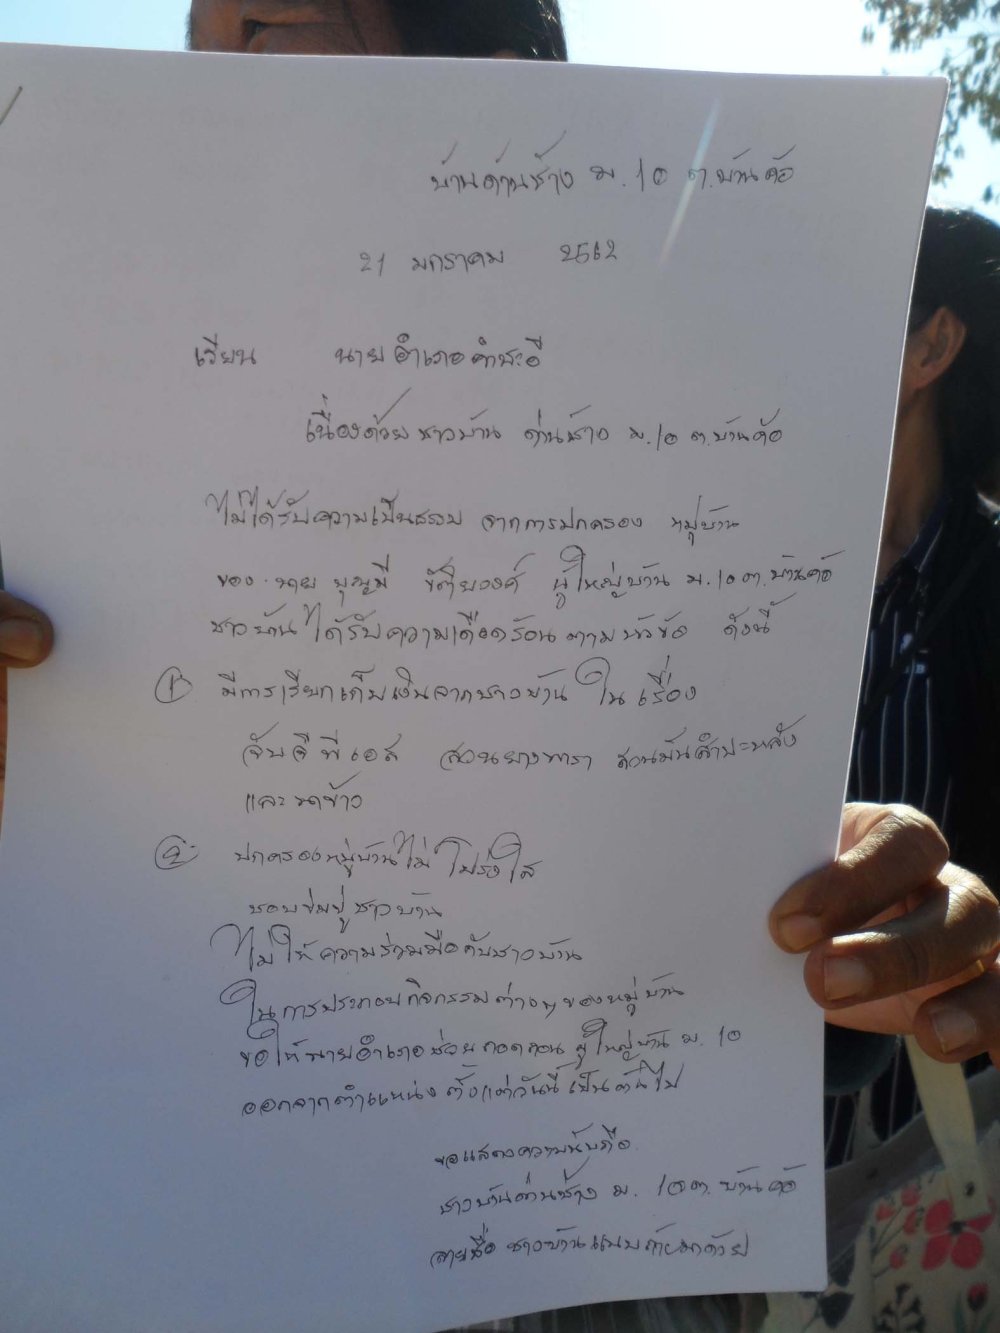 บ้านด่านช้าง ม.10 ต.บ้านค้อ
21 มกราคม 2562
เรียน นายอำเภอคำชะอี
เนื่องด้วยชาวบ้าน ด่านช้าง ม.10 ต.บ้านค้อ
ไม่ได้รับความเป็นธรรม จากการปกครอง หมู่บ้าน
ของ นาย บุญมี ผู้ใหญ่บ้าน ม.10 ต.บ้านค้อ
ชาวบ้านได้รับความเดือดร้อนตามหัวข้อ ดังนี้
① มีการเรียกเก็บเงินจากชาวบ้าน ในเรื่อง
จับจีพีเอส สวนยางพารา สวนมันสำปะหลัง
และนาข้าว
② ปกครองหมู่บ้านไม่โปร่งใส
ชอบข่มขู่ชาวบ้าน
ไม่ให้ความร่วมมือกับชาวบ้าน
ในการประกอบกิจกรรมต่างๆของหมู่บ้าน
ขอให้นายอำเภอช่วยถอดถอน ผู้ใหญ่บ้าน ม.10
ออกจากตำแหน่งตั้งแต่วันนี้เป็นต้นไป
ขอแสดงความนับถือ
ชาวบ้านด่านช้าง ม.10 ต.บ้านค้อ
รายชื่อ ชาวบ้านแนบท้ายมาด้วย